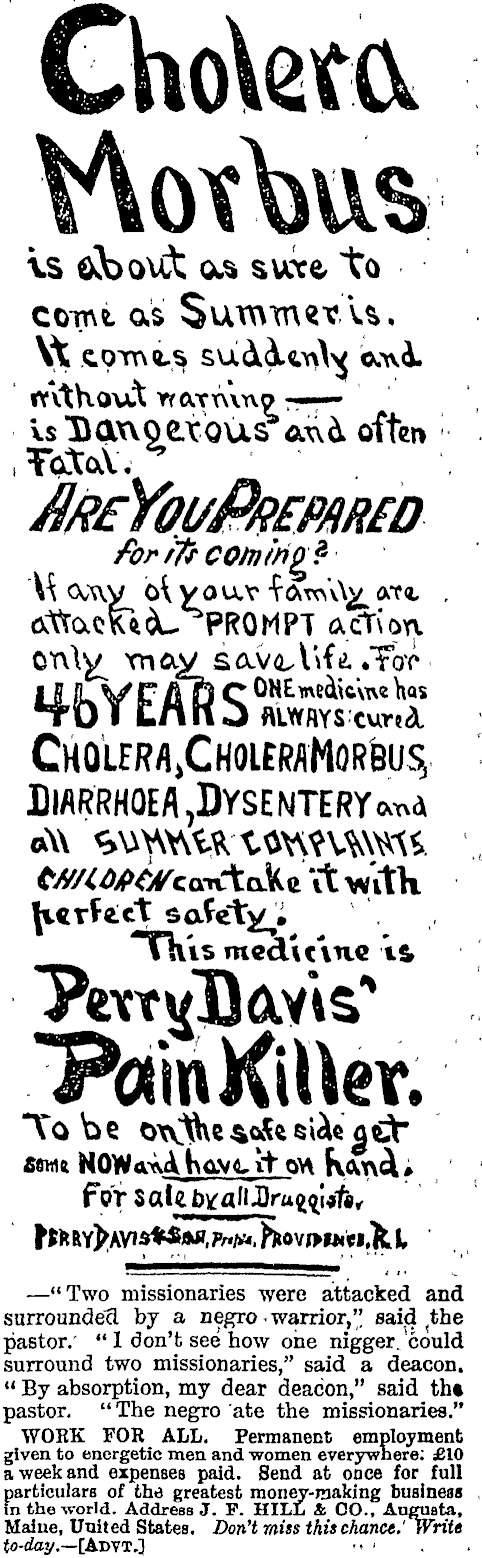 Cholera
Morbus
is about as sure to
come as Summer is.
It comes suddenly and
without warning —
is Dangerous and often
Fatal.
ARE YOU PREPARED
for its coming?
If any of your family are
attacked PROMPT action
only may save life. For
46 YEARS ONE medicine has
ALWAYS cured
CHOLERA, CHOLERA MORBUS,
DIARRHOEA, DYSENTERY and
all SUMMER COMPLAINTS.
CHILDREN can take it with
perfect safety.
This medicine is
Perry Davis'
Pain Killer.
To be on the safe side get
some NOW and have it on hand.
For sale by all Druggists,
PERRY DAVIS & SON, Prop's, PROVIDENCE, R.I.
—"Two missionaries were attacked and
surrounded by a negro warrior," said the
pastor. "I don't see how one nigger could
surround two missionaries," said a deacon.
"By absorption, my dear deacon," said the
pastor. "The negro ate the missionaries."
WORK FOR ALL. Permanent employment
given to energetic men and women everywhere: £10
a week and expenses paid. Send at once for full
particulars of the greatest money-making business
in the world. Address J. F. HILL & CO., Augusta,
Maine, United States. Don't miss this chance. Write
to-day.—[ADVT.]